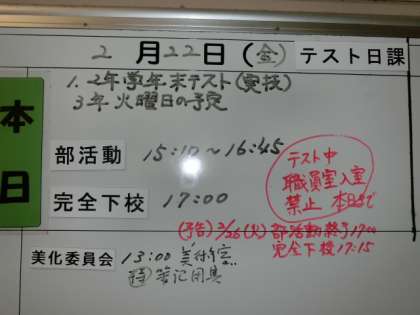 2月22日(金) テスト日課
1.2年学年末テスト(実技)
3年火曜日の予定
本日
部活動 15:10~16:45
完全下校 17:00
テスト中
職員室入室
禁止 本日まで
(予告) 2/26(火) 部活動終了17:00
完全下校17:15
美化委員会 13:00 美術室
筆記用具